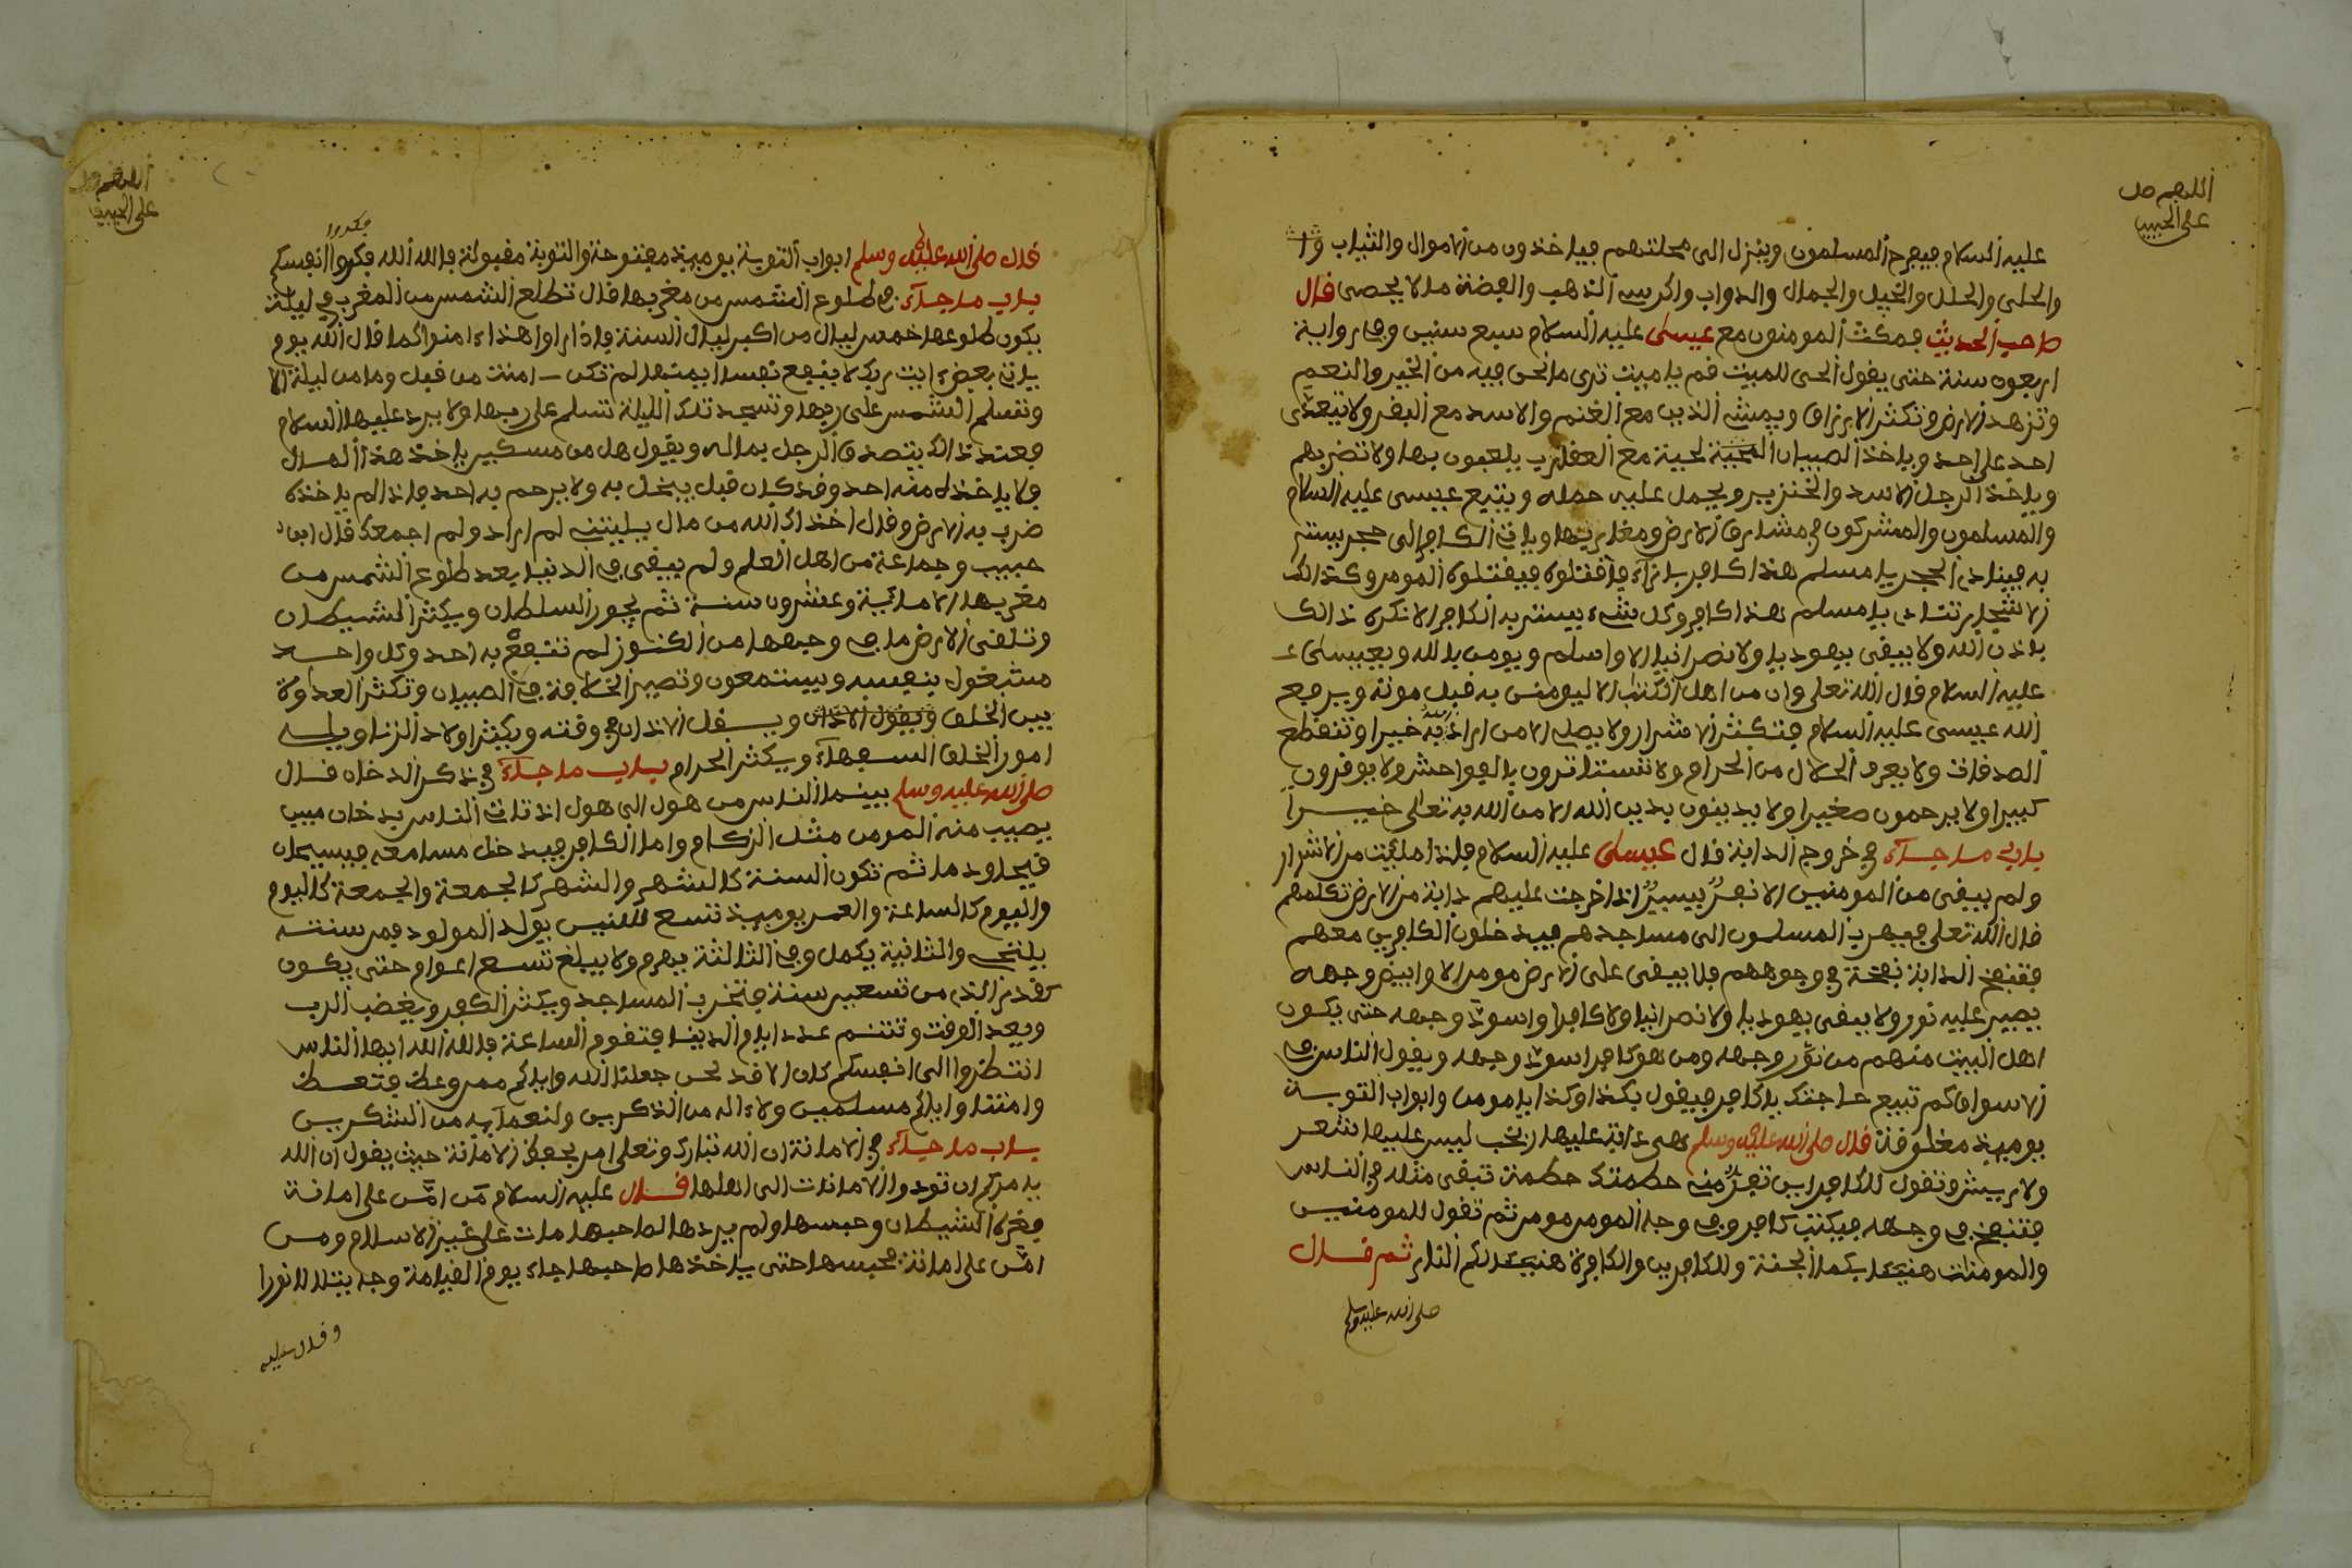 اللهم صل
على الحبيب
عليه السلام فيفرح المسلمون وينزل الى محلتهم فياخذون من الاموال والثياب وا
والحلى والحلل والخيل والجمال والدواب واكرسى الذهب والفضة ما لا يحصى قال
صاحب الحديث فمكث المومنون مع عيسى عليه السلام سبع سنين وفى رواية
اربعون سنة حتى يقول الحى للميت قم يا ميت ترى ما نحن فيه من الخير والنعيم
وتزهد الارض وتكثر الارزاق ويمشى الذيب مع الغنم والاسد مع البقر ولا يتعدى
احد على احد وياخذ الصبيان الحية لحية مع العقارب يلعبون بها ولا تضربهم
وياخذ الرجل الاسد والخنزير ويحمل عليه حمله ويتبع عيسى عليه السلام
والمسلمون والمشركون فى مشارق الارض ومغاربها وياتى الكافر الى حجر يستتر
به فينادى الحجر يا مسلم هذا كافر بازآء فاقتلوه فيقتلوه المومن وكذالك
الاشجار تنادى يا مسلم هذا كافر وكل شىء يستتر به الكافر الا نكره ذالك
باذن الله ولا يبقى يهوديا ولا نصرانيا الا واسلم ويومن بالله وبعيسى عـ
عليه السلام قال الله تعلى وان من اهل الكتب الا ليومنن به قبل موته ويرجع
الله عيسى عليه السلام فتكثر الاشرار ولا يصلى الا من اراد الله به خيرا وتنقطع
الصدقات ولا يعرف الحلال من الحرام ولا تستاترون بالفواحش ولا يوقرون
كبيرا ولا يرحمون صغيرا ولا يدينون بدين الله الا من الله به تعلى خيـــرا
باب ما جآء فى خروج الدابة قال عيسى عليه السلام فاذا مليت من الاشرار
ولم يبقى من المومنين الا نفر يسير اذا خرجت عليهم دابة من الارض تكلمهم
قال الله تعلى فيهرب المسلمون الى مساجدهم فيدخلون الكافرين معهم
فتنفخ الدابة نفخة فى وجوههم فلا يبقى على الارض مومن الا وابيض وجهه
يصير عليه نور ولا يبقى يهوديا ولا نصرانيا ولا كافرا واسود وجهه حتى يكون
اهل البيت منهم من نور وجهه ومن هو كافر اسود وجهه ويقول الناس فى
الاسواق كم تبيع حاجتك يا كافر فيقول بكذا وكذا يا مومن وابواب التوبـة
يوميذ مغلوقة قال صلى الله عليه وسلم هى دابة عليها زغب ليس عليها شعر
ولا ريش وتقول للكافر اين تفر منه حطمتك حطمة تبقى مثله فى الناس
فتنفخ فى وجهه فيكتب كافر وفى وجه المومن مومن ثم تقول للمومنين
والمومنات هنيئا بكما الجنة وللكافرين والكافرة هنيئا لكم النار ثم قـــال
صلى الله عليه وسلم
اللهم صل
على الحبيب
فكروا
قال صلى الله عليه وسلم ابواب التوبة يوميذ مفتوحة والتوبة مقبولة فالله الله فكروا انفسكم
باب ما جآء فى طلوع الشمس من مغربها قال تطلع الشمس من المغرب فى ليلة
يكون طلوعها خمس ليال من اكبر ليال السنة فاذا راوا هذا ءامنوا كما قال الله يوم
ياتى بعض ءايت ربك لا ينفع نفسا ايمنها لم تكن ـ امنت من قبل وما من ليلة الا
وتسلم الشمس على ربها وتسجد تلك الليلة تسلم على ربها ولا يرد عليها السلام
فعند ذالك يتصدق الرجل بماله ويقول هل من مسكين ياخذ هذا المـــال
ولا ياخذه منه احد وقد كان قبل يبخل به ولا يرحم به احد فاذا لم ياخذه
ضرب به الارض وقال اخذاك الله من مال ياليتنى لم اراد ولم اجمعك قال ابن
حبيب وجماعة من اهل العلم ولم يبقى فى الدنيا بعد طلوع الشمس من
مغربها الا ماية وعشرون سنـة ثم يجور السلطان ويكثر الشيطان
وتلقى الارض ما فى وجهها من الكنوز لم تنتفع به احد وكل واحـــد
مشغول بنفسه ويستمعون وتصير الخلافة فى الصبيان وتكثر العدوة
بين الخلق ويقول الاذان ويـــقل الاذان فى وقته ويكثر اولاد الزنا ويلـــى
امور الخلق السفهآء ويكثر الحرام باب ما جآء فى ذكر الدخان قـــال
صلى الله عليه وسلم بينما الناس من هول الى هول اذ تات الناس بدخان مبين
يصيب منه المومن مثل الزكام واما الكافر فيدخل مسامعه فيسيحان
قيحا ودما ثم تكون السنة كالشهر والشهر كالجمعة والجمعة كاليوم
واليوم كالساعة والعمر يوميذ تسع سنين يولد المولود فمن سنتـــه
يلتحى والثانية يكمل وفى الثالثة يهرم ولا يبلغ تسع اعوام حتى يكون
كقدر الذى من تسعين سنة فتخرب المساجد ويكثر الكفر ويغضب الرب
وبعد الوقت وتتـــم عدد ايام الدنيا فتقوم الساعة فالله الله ايها الناس
انتظروا الى انفسكم كان الا قد نحن جعلنا الله واياكم ممن وعظ فتعـــظ
وامتنا واياكم مسلمين ولاءاله من الذكرين ولنعمآيه من الشكرين
باب ما جـــآء فى الامانة ان الله تبارك وتعلى امر بحفظ الامانة حيث يقول ان الله
يامركم ان تودوا الامانات الى اهلها قـــال عليه السلام من امن على امانة
فغره الشيطان وحبسها ولم يردها لصاحبها مات على غير الاسلام ومـــن
امن على امانة فحبسها حتى ياخذها صاحبها جاء يوم القيامة وجه يتلالا نورا
وقال عليه